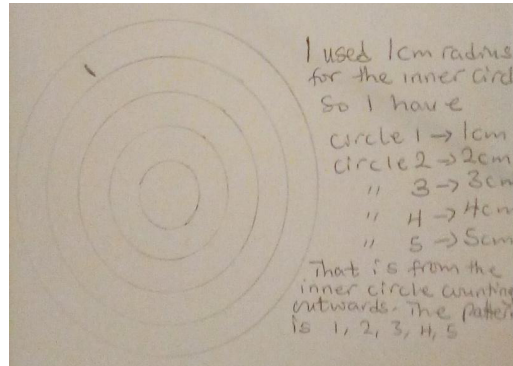 I used 1cm radius
for the inner circl
So I have
circle 1 → 1cm
circle 2 → 2cm
" 3 → 3cm
" 4 → 4cm
" 5 → 5cm
That is from the
inner circle counting
outwards. The patter
is 1, 2, 3, 4, 5